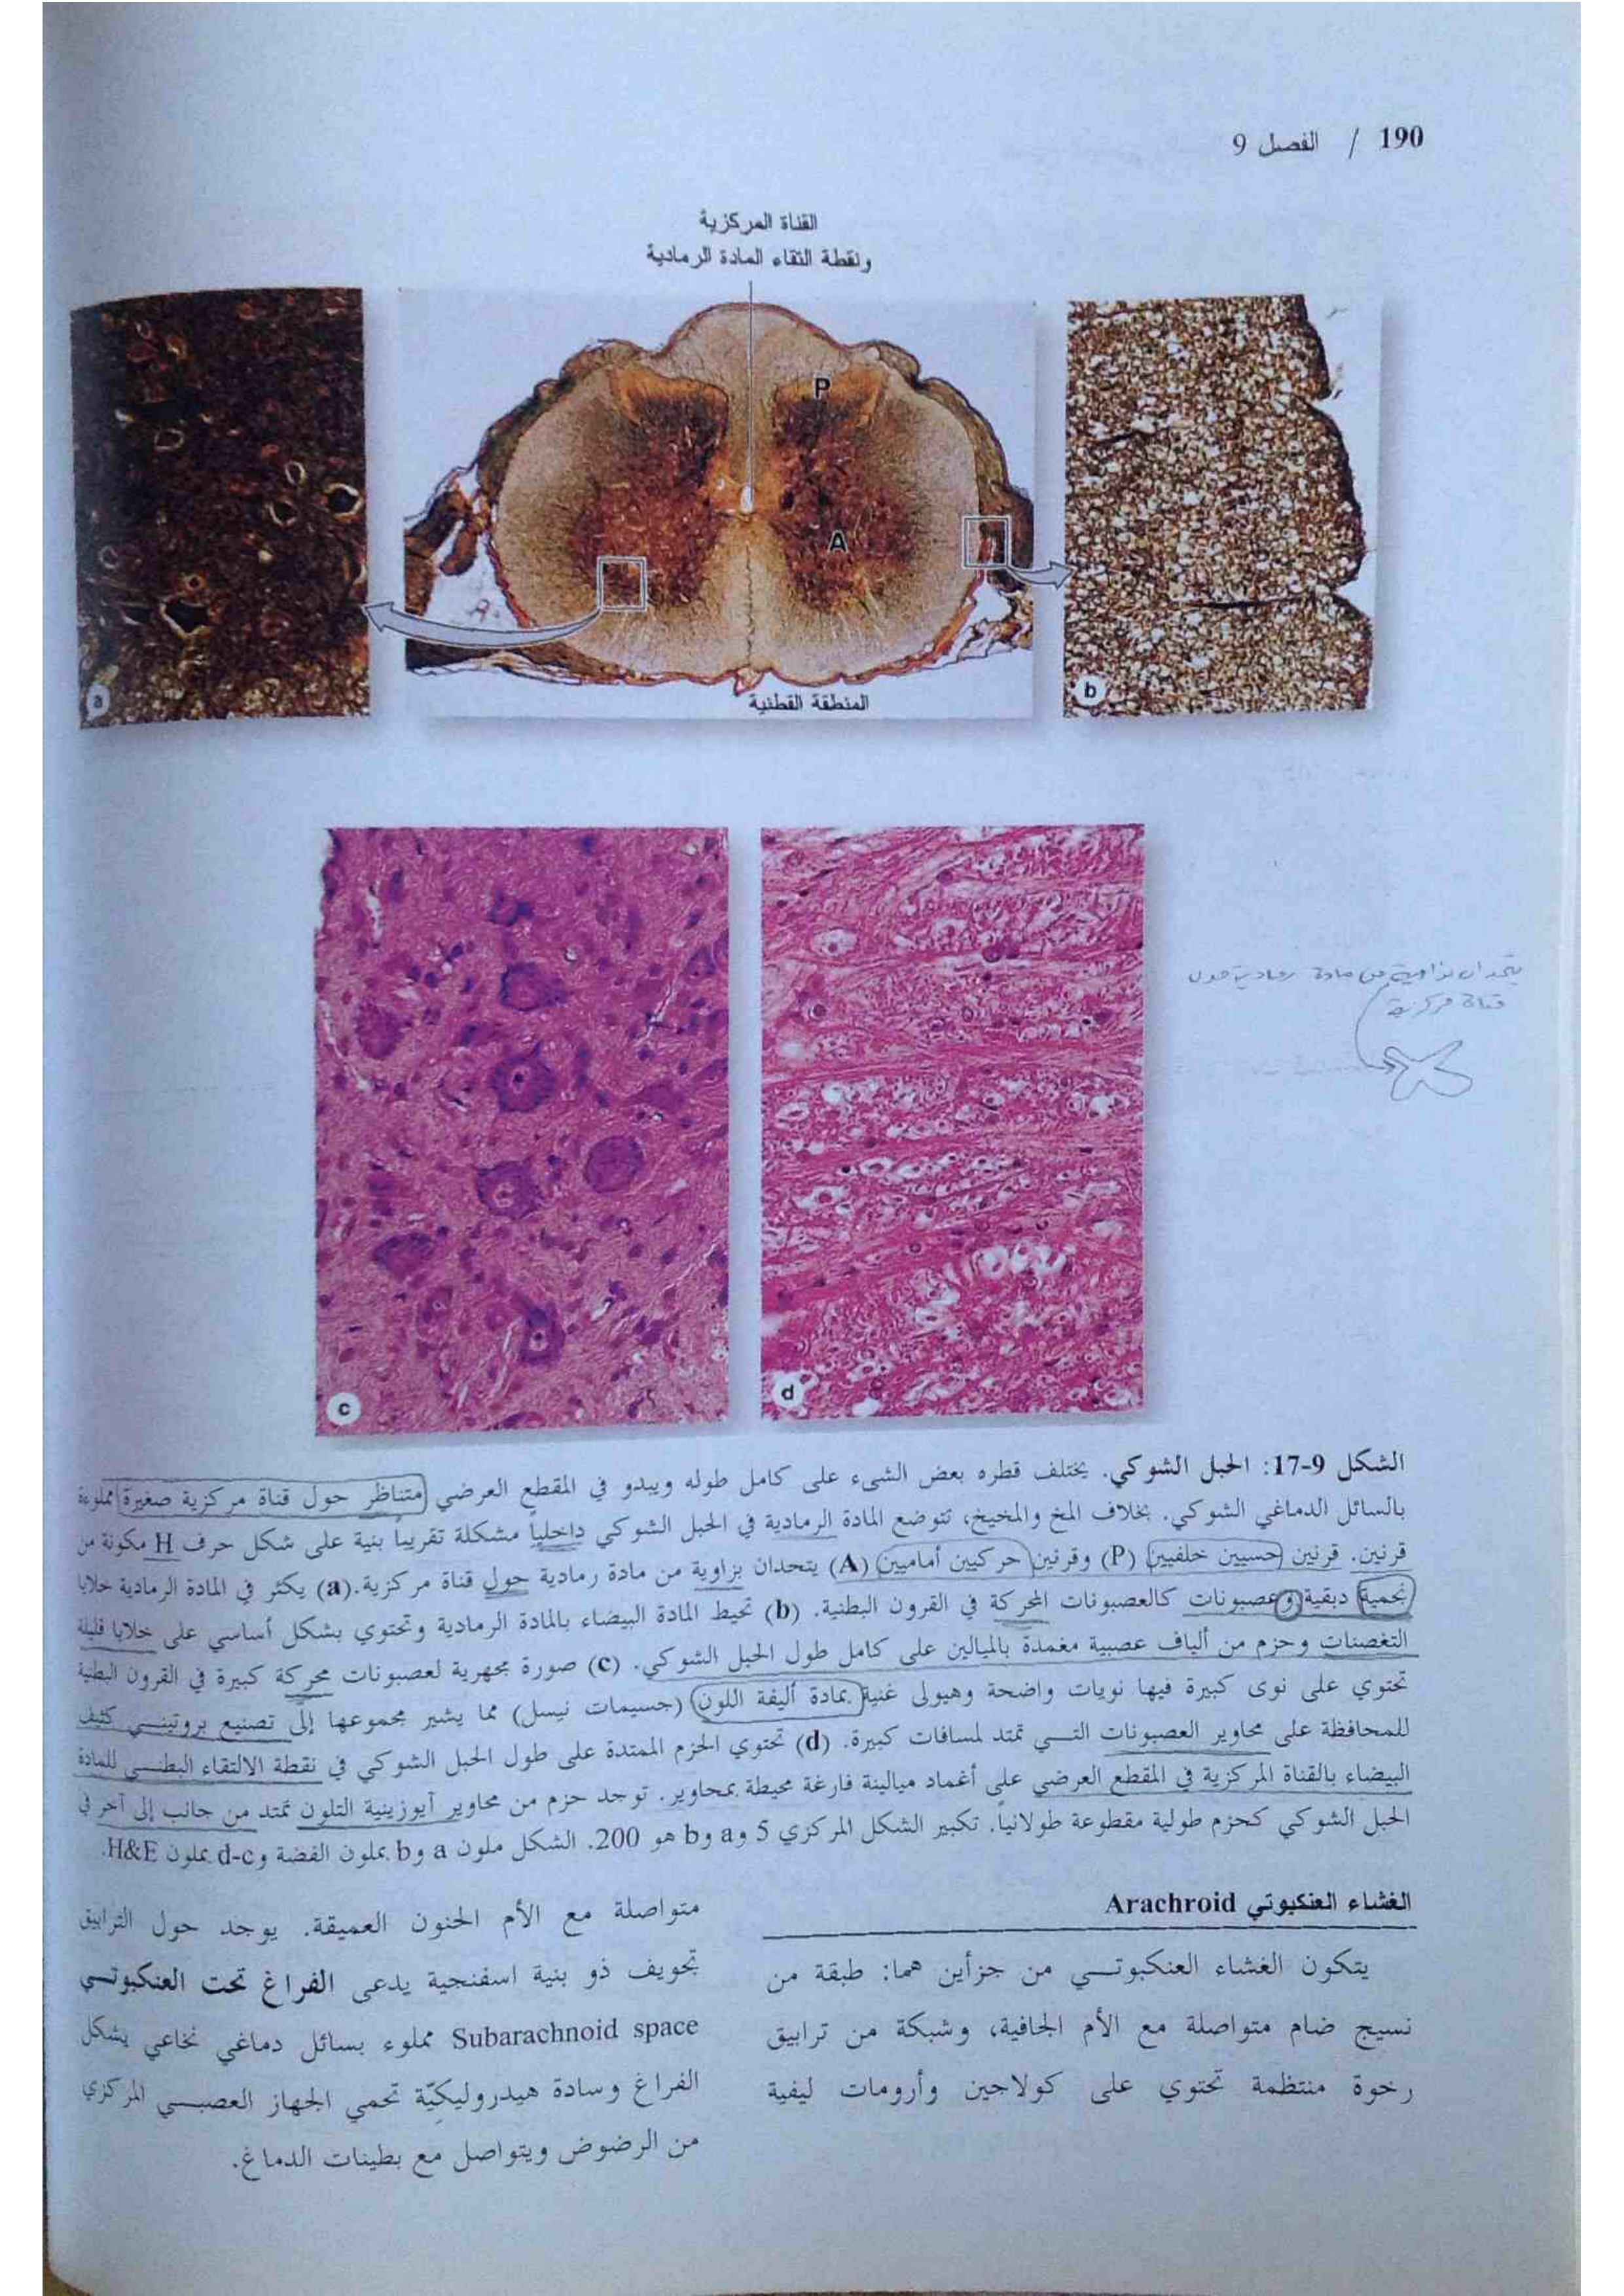 190 / الفصل 9
القناة المركزية
ونقطة التقاء المادة الرمادية
P
A
المنطقة القطنية
a
b
c
d
يتحدان بزاوية من مادة رمادية حول
قناة مركزية
الشكل 9-17: الحبل الشوكي. يختلف قطره بعض الشيء على كامل طوله ويبدو في المقطع العرضي متناظر حول قناة مركزية صغيرة مملوءة
بالسائل الدماغي الشوكي. بخلاف المخ والمخيخ، تتوضع المادة الرمادية في الحبل الشوكي داخلياً مشكلة تقريباً بنية على شكل حرف H مكونة من
قرنين. قرنين حسيين خلفيين (P) وقرنين حركيين أماميين (A) يتحدان بزاوية من مادة رمادية حول قناة مركزية. (a) يكثر في المادة الرمادية خلايا
نجمية دبقية وعصبونات كالعصبونات المحركة في القرون البطنية. (b) تحيط المادة البيضاء بالمادة الرمادية وتحتوي بشكل أساسي على خلايا قليلة
التغصنات وحزم من ألياف عصبية مغمدة بالميالين على كامل طول الحبل الشوكي. (c) صورة مجهرية لعصبونات محركة كبيرة في القرون البطنية
تحتوي على نوى كبيرة فيها نويات واضحة وهيولى غنية بمادة أليفة اللون (جسيمات نيسل) مما يشير مجموعها إلى تصنيع بروتيني كثيف
للمحافظة على محاوير العصبونات التي تمتد لمسافات كبيرة. (d) تحتوي الحزم الممتدة على طول الحبل الشوكي في نقطة الالتقاء البطني للمادة
البيضاء بالقناة المركزية في المقطع العرضي على أغماد ميالينة فارغة محيطة بمحاوير. توجد حزم من محاوير آيوزينية التلون تمتد من جانب إلى آخر في
الحبل الشوكي كحزم طولية مقطوعة طولانياً. تكبير الشكل المركزي 5 وa وb هو 200. الشكل ملون a وb بملون الفضة وc-d بملون H&E.
الغشاء العنكبوتي Arachroid
يتكون الغشاء العنكبوتي من جزأين هما: طبقة من
نسيج ضام متواصلة مع الأم الجافية، وشبكة من ترابيق
رخوة منتظمة تحتوي على كولاجين وأرومات ليفية
متواصلة مع الأم الحنون العميقة. يوجد حول الترابيق
تجويف ذو بنية اسفنجية يدعى الفراغ تحت العنكبوتي
Subarachnoid space مملوء بسائل دماغي نخاعي يشكل
الفراغ وسادة هيدروليكيّة تحمي الجهاز العصبي المركزي
من الرضوض ويتواصل مع بطينات الدماغ.